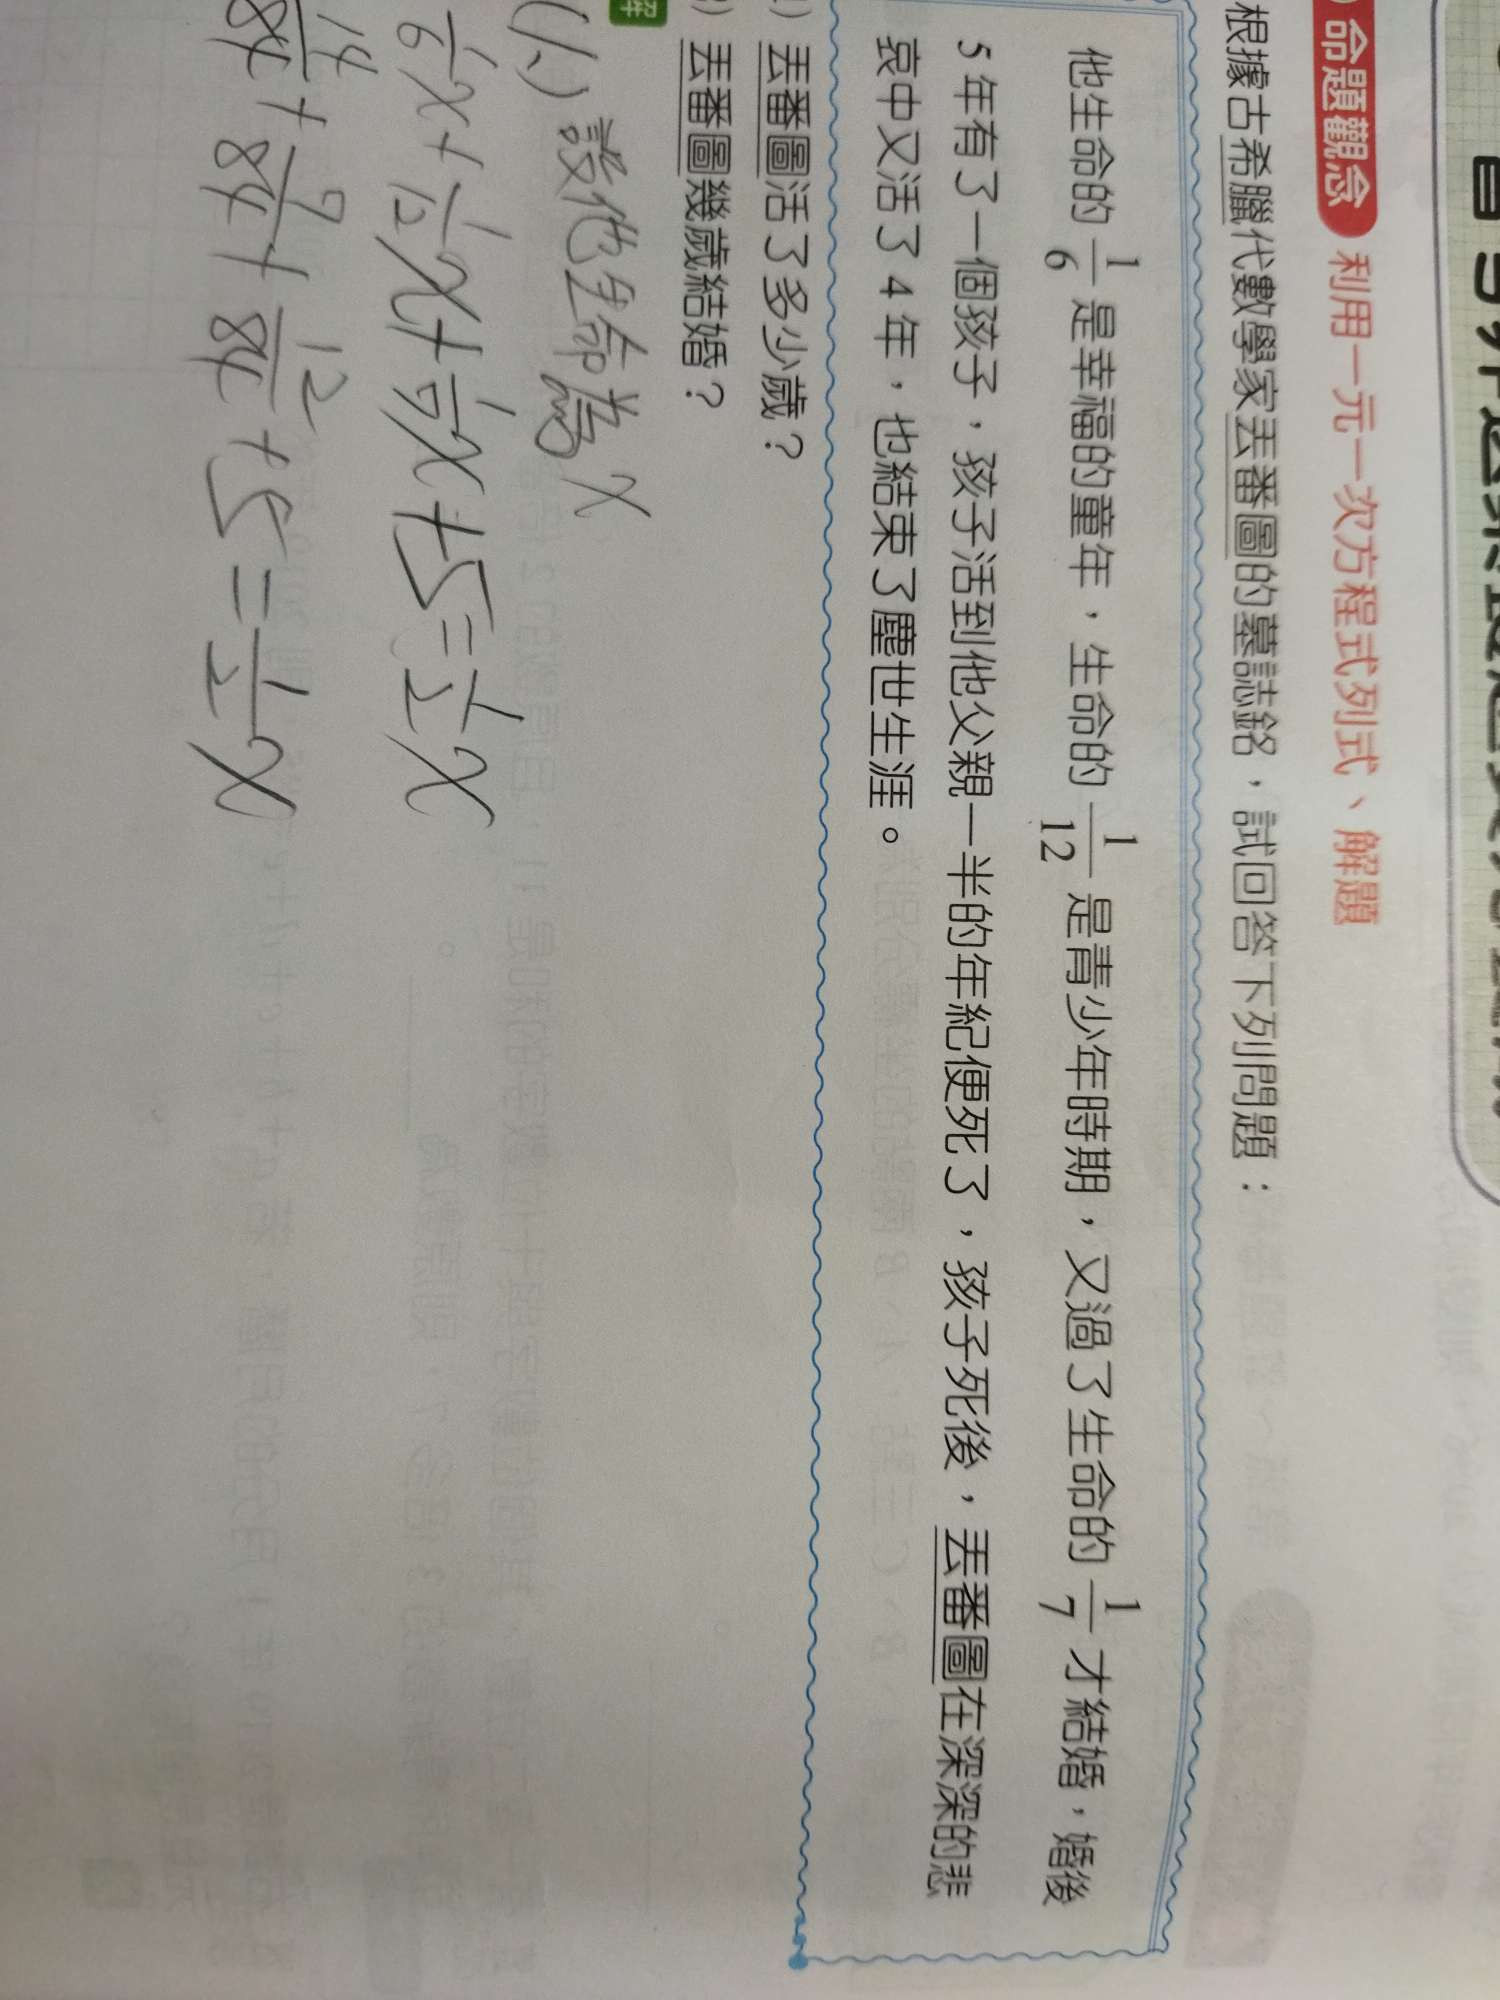 命題觀念 利用一元一次方程式列式、解題
根據古希臘代數學家丟番圖的墓誌銘，試回答下列問題：
他生命的 1/6 是幸福的童年，生命的 1/12 是青少年時期，又過了生命的 1/7 才結婚，婚後
5 年有了一個孩子，孩子活到他父親一半的年紀便死了，孩子死後，丟番圖在深深的悲
哀中又活了 4 年，也結束了塵世生涯。
丟番圖活了多少歲？
丟番圖幾歲結婚？
解
(1、) 設他生命為 x
1/6 x + 1/12 x + 1/7 x + 5 = 1/2 x
14/84 + 7/84 + 12/84 + 5 = 1/2 x